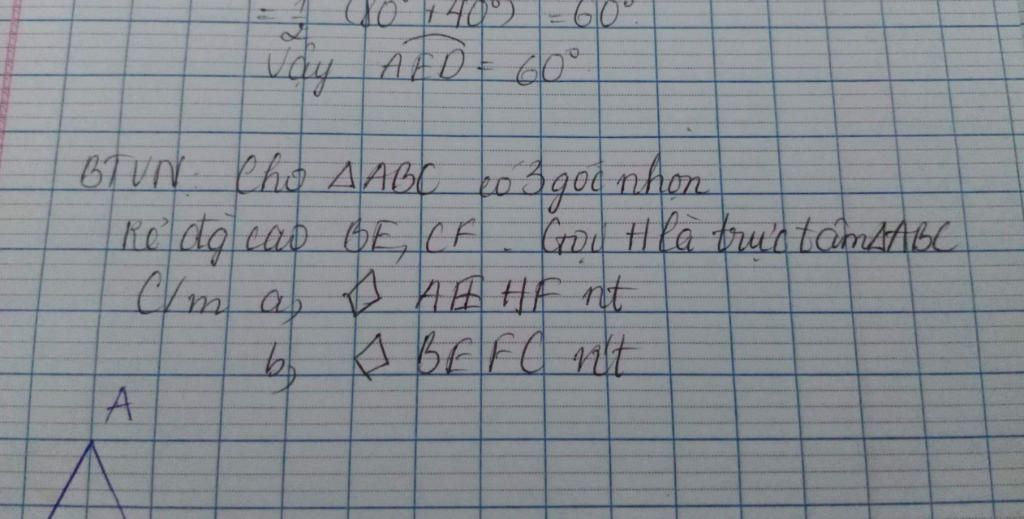 = 1/2 (80° + 40°) = 60°
Vậy AED = 60°
BTVN: Cho ΔABC có 3 góc nhọn
Kẻ đg cao BE, CF. Gọi H là trực tâm ΔABC
C/m a, ◇ AEHF nt
b, ◇ BEFC nt
A